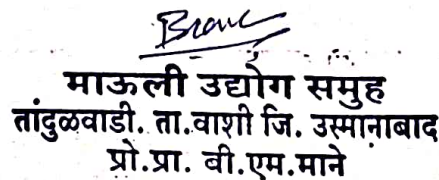 माऊली उद्योग समुह
तांदुळवाडी. ता.वाशी जि. उस्मानाबाद
प्रो.प्रा. बी.एम.माने